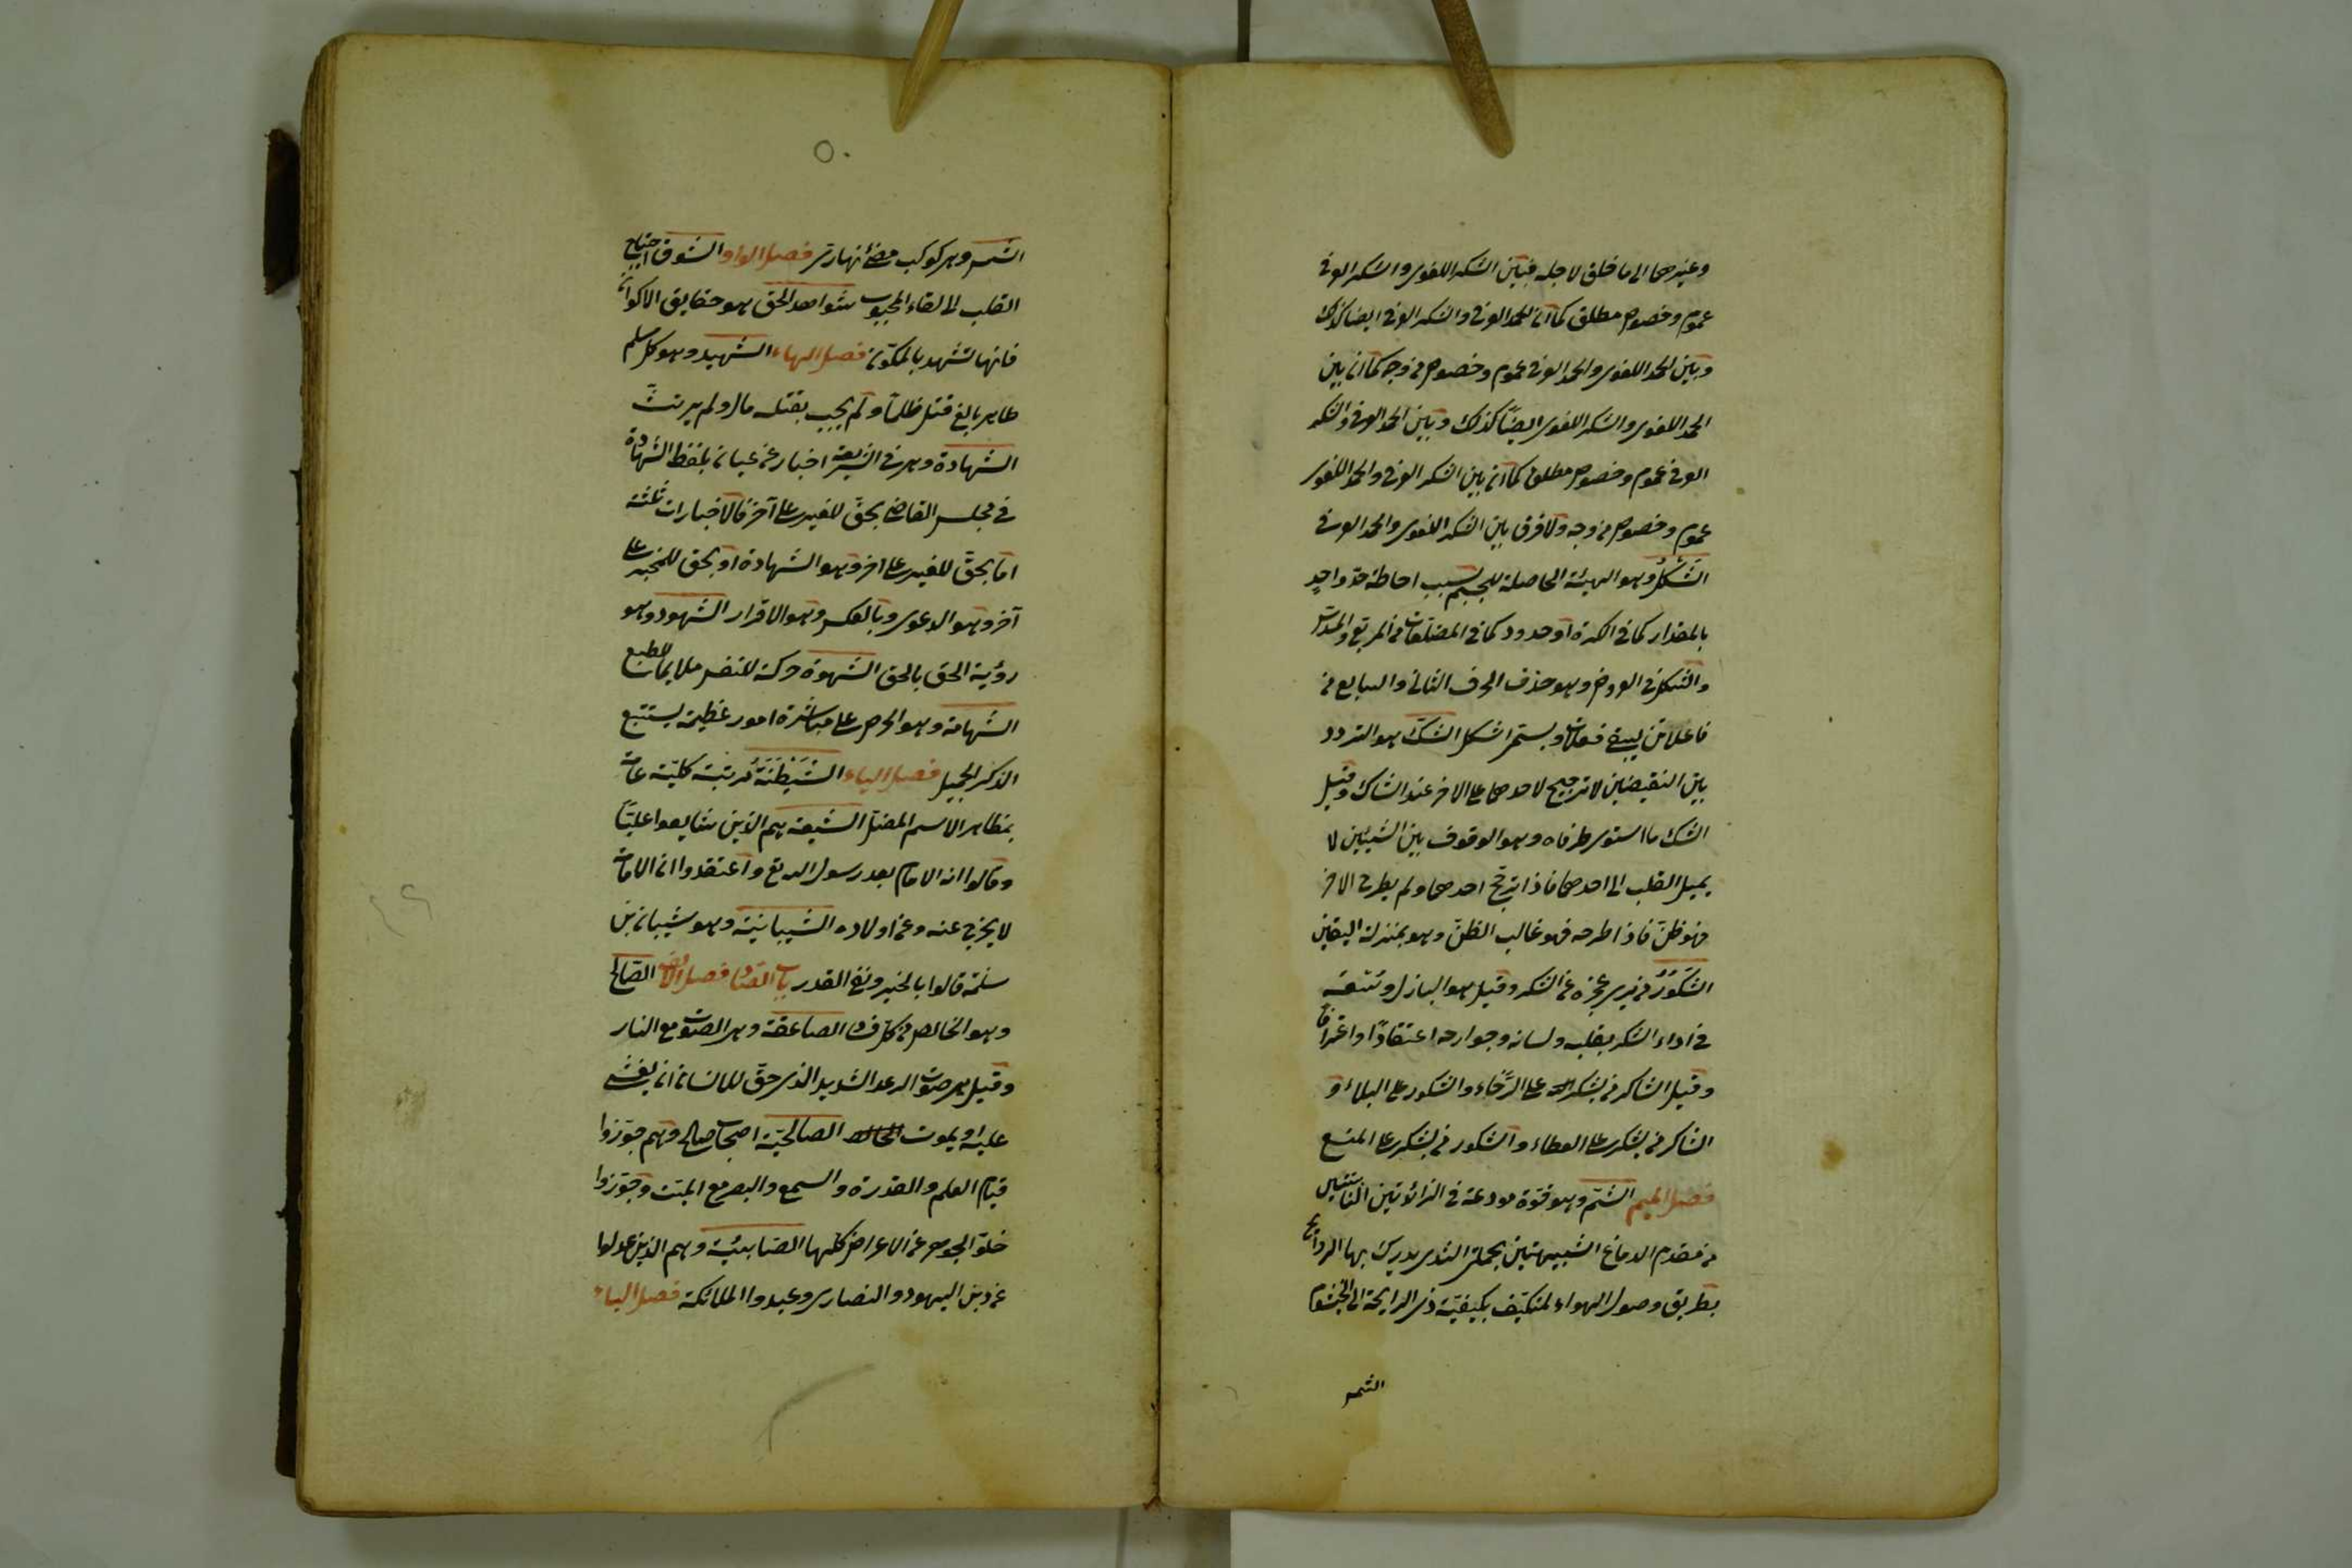 وغيرهما الى ما خلق لاجله فبين الشكر اللغوى والشكر العرفى
عموم وخصوص مطلق كما ان بين الحمد العرفى والشكر العرفى ايضا كذلك
وبين الحمد اللغوى والحمد العرفى عموم وخصوص من وجه كما ان بين
الحمد اللغوى والشكر اللغوى ايضًا كذلك وبين الحمد العرفى والشكر
العرفى عموم وخصوص مطلق كما ان بين الشكر العرفى والحمد اللغوى
عموم وخصوص من وجه ولا فرق بين الشكر اللغوى والحمد العرفى
الشَّكْلُ وهو الهيئة الحاصلة للجسم بسبب احاطة حدّ واحدٍ
بالمقدار كما فى الكرة او حدود كما فى المضلعات من المربع والمسدّس
والشكل فى العروض وهو حذف الحرف الثانى والسابع من
فاعلاتن ليبقى فعلات ويسمّى اشكل الشكّ هو التردد
بين النقيضين لا ترجيح لاحدهما على الاخر عند الشاك وقيل
الشك ما استوى طرفاه وهو الوقوف بين الشيئين لا
يميل القلب الى احدهما فاذا ترجّح احدهما ولم يطرح الاخر
فهو ظنّ فاذا طرحه فهو غالب الظنّ وهو بمنزلة اليقين
الشَّكُوُرُ من يرى عجزه عن الشكر وقيل هو الباذل وسعه
فى اداء الشكر بقلبه ولسانه وجوارحه اعتقادًا واعترافا
وقيل الشاكر من يشكر على الرَّخاء والشكور على البلاء و
الشاكر من يشكر على العطاء والشكور من يشكر على المنع
فصل الميم الشّمّ وهو قوّة مودعة فى الزائدتين النابتتين
من مقدم الدماغ الشبيهتين بحلمتى الثدى يدرك بها الروائح
بطريق وصول الهواء المتكيّف بكيفيّة ذى الرايحة الى الخيشوم
الشمس
٥٠
الشمس وهى كوكب مضئ نهارى فصل الواو الشوق احتياج
القلب الى لقاء المحبوب شواهد الحق هو حقايق الاكوان
فانها تشهد بالمكوّن فصل الهاء الشهيد وهو كل مسلم
طاهر بالغ قتل ظلمًا ولم يجب بقتله مال ولم يرتثّ
الشهادة وهى فى الشريعة اخبار عن عيان بلفظ الشهادة
فى مجلس القاضى بحقّ للغير على آخر فالاخبارات ثلثة
امّا بحقّ للغير على اخر وهو الشهادة او بحق للمخبر على
آخر وهو الدعوى وبالعكس وهو الاقرار الشهود وهو
رؤية الحق بالحق الشهوة حركة للنفس طلبا للملايم
الشهامة وهو الحرص على مباشرة امور عظيمة يستتبع
الذكر الجميل فصل الياء الشَّيْطَنَةُ مرتبة كليّة عامة
بمظاهر الاسم المضلّ الشيعة هم الذين شايعوا عليّا
وقالوا انه الامام بعد رسول الله تع واعتقدوا ان الامامة
لا يخرج عنه وعن اولاده الشيبانيّة وهو شيبان بن
سلمة قالوا بالجبر ونفى القدر باب الصّاد فصل الالف الصّالح
وهو الخالص من كل فساد الصاعقة وهى الصوت مع النار
وقيل هى صوت الرعد الشديد الذى حقّ للانسان ان يغشى
عليه او يموت الصالحيّة اصحاب صالحى وهم جوّزوا
قيام العلم والقدرة والسمع والبصر مع الميّت وجوّزوا
خلوّ الجوهر عن الاعراض كلها الصّابيئة وهم الذين عدلوا
عن دين اليهود والنصارى وعبدوا الملائكة فصل الباء